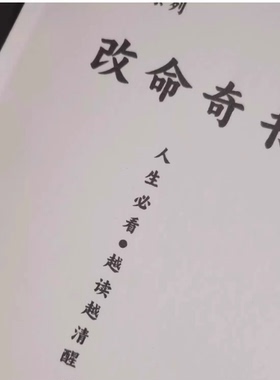 列
改命奇书
人生必看●越读越清醒